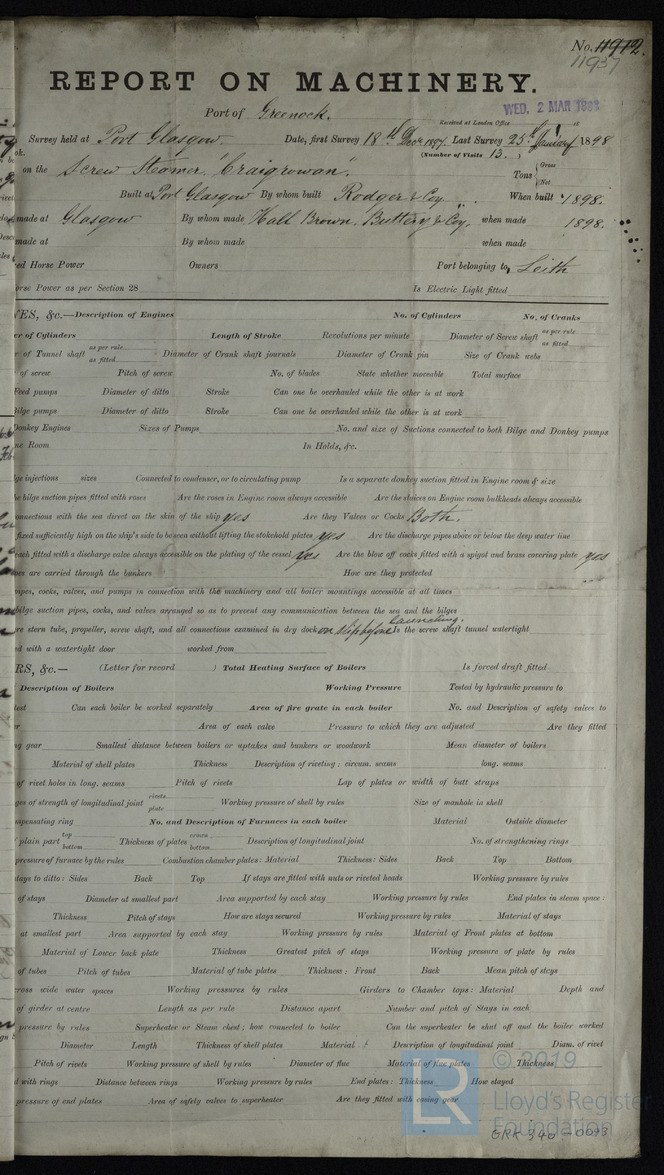 No. 11912.
11937
REPORT ON MACHINERY.
Port of Greenock.
Received at London Office WED. 2 MAR 1898
Survey held at Port Glasgow. Date, first Survey 18th Decr 1897. Last Survey 25th January 1898
(Number of Visits 13.)
on the Screw Steamer "Craigrowan". Tons { Gross
Net
Built at Port Glasgow By whom built Rodger & Coy. When built 1898.
made at Glasgow By whom made Hall Brown, Buttery & Coy. when made 1898.
made at By whom made when made
ed Horse Power Owners Port belonging to Leith
orse Power as per Section 28 Is Electric Light fitted
ES, &c.—Description of Engines No. of Cylinders No. of Cranks
er of Cylinders Length of Stroke Revolutions per minute Diameter of Screw shaft as per rule
as fitted
r of Tunnel shaft as per rule
as fitted Diameter of Crank shaft journals Diameter of Crank pin Size of Crank webs
of screw Pitch of screw No. of blades State whether moveable Total surface
Feed pumps Diameter of ditto Stroke Can one be overhauled while the other is at work
Bilge pumps Diameter of ditto Stroke Can one be overhauled while the other is at work
Donkey Engines Sizes of Pumps No. and size of Suctions connected to both Bilge and Donkey pumps
ne Room In Holds, &c.
lge injections sizes Connected to condenser, or to circulating pump Is a separate donkey suction fitted in Engine room & size
he bilge suction pipes fitted with roses Are the roses in Engine room always accessible Are the sluices on Engine room bulkheads always accessible
connections with the sea direct on the skin of the ship yes Are they Valves or Cocks Both.
fixed sufficiently high on the ship's side to be seen without lifting the stokehold plates yes Are the discharge pipes above or below the deep water line
each fitted with a discharge valve always accessible on the plating of the vessel yes Are the blow off cocks fitted with a spigot and brass covering plate yes
es are carried through the bunkers How are they protected
pipes, cocks, valves, and pumps in connection with the machinery and all boiler mountings accessible at all times
bilge suction pipes, cocks, and valves arranged so as to prevent any communication between the sea and the bilges
re stern tube, propeller, screw shaft, and all connections examined in dry dock on slip before launching. Is the screw shaft tunnel watertight
ed with a watertight door worked from
RS, &c.— (Letter for record ) Total Heating Surface of Boilers Is forced draft fitted
Description of Boilers Working Pressure Tested by hydraulic pressure to
test Can each boiler be worked separately Area of fire grate in each boiler No. and Description of safety valves to
r Area of each valve Pressure to which they are adjusted Are they fitted
ng gear Smallest distance between boilers or uptakes and bunkers or woodwork Mean diameter of boilers
Material of shell plates Thickness Description of riveting: circum. seams long. seams
of rivet holes in long. seams Pitch of rivets Lap of plates or width of butt straps
ges of strength of longitudinal joint rivets
plate Working pressure of shell by rules Size of manhole in shell
mpensating ring No. and Description of Furnaces in each boiler Material Outside diameter
plain part top
bottom Thickness of plates crown
bottom Description of longitudinal joint No. of strengthening rings
pressure of furnace by the rules Combustion chamber plates: Material Thickness: Sides Back Top Bottom
stays to ditto: Sides Back Top If stays are fitted with nuts or riveted heads Working pressure by rules
of stays Diameter at smallest part Area supported by each stay Working pressure by rules End plates in steam space:
Thickness Pitch of stays How are stays secured Working pressure by rules Material of stays
at smallest part Area supported by each stay Working pressure by rules Material of Front plates at bottom
Material of Lower back plate Thickness Greatest pitch of stays Working pressure of plate by rules
of tubes Pitch of tubes Material of tube plates Thickness: Front Back Mean pitch of stays
cross wide water spaces Working pressures by rules Girders to Chamber tops: Material Depth and
of girder at centre Length as per rule Distance apart Number and pitch of Stays in each
pressure by rules Superheater or Steam chest; how connected to boiler Can the superheater be shut off and the boiler worked
Diameter Length Thickness of shell plates Material Description of longitudinal joint Diam. of rivet
Pitch of rivets Working pressure of shell by rules Diameter of flue Material of flue plates Thickness
d with rings Distance between rings Working pressure by rules End plates: Thickness How stayed
pressure of end plates Area of safety valves to superheater Are they fitted with easing gear
LR © 2019
Lloyd's Register
Foundation
GRK 340-0093